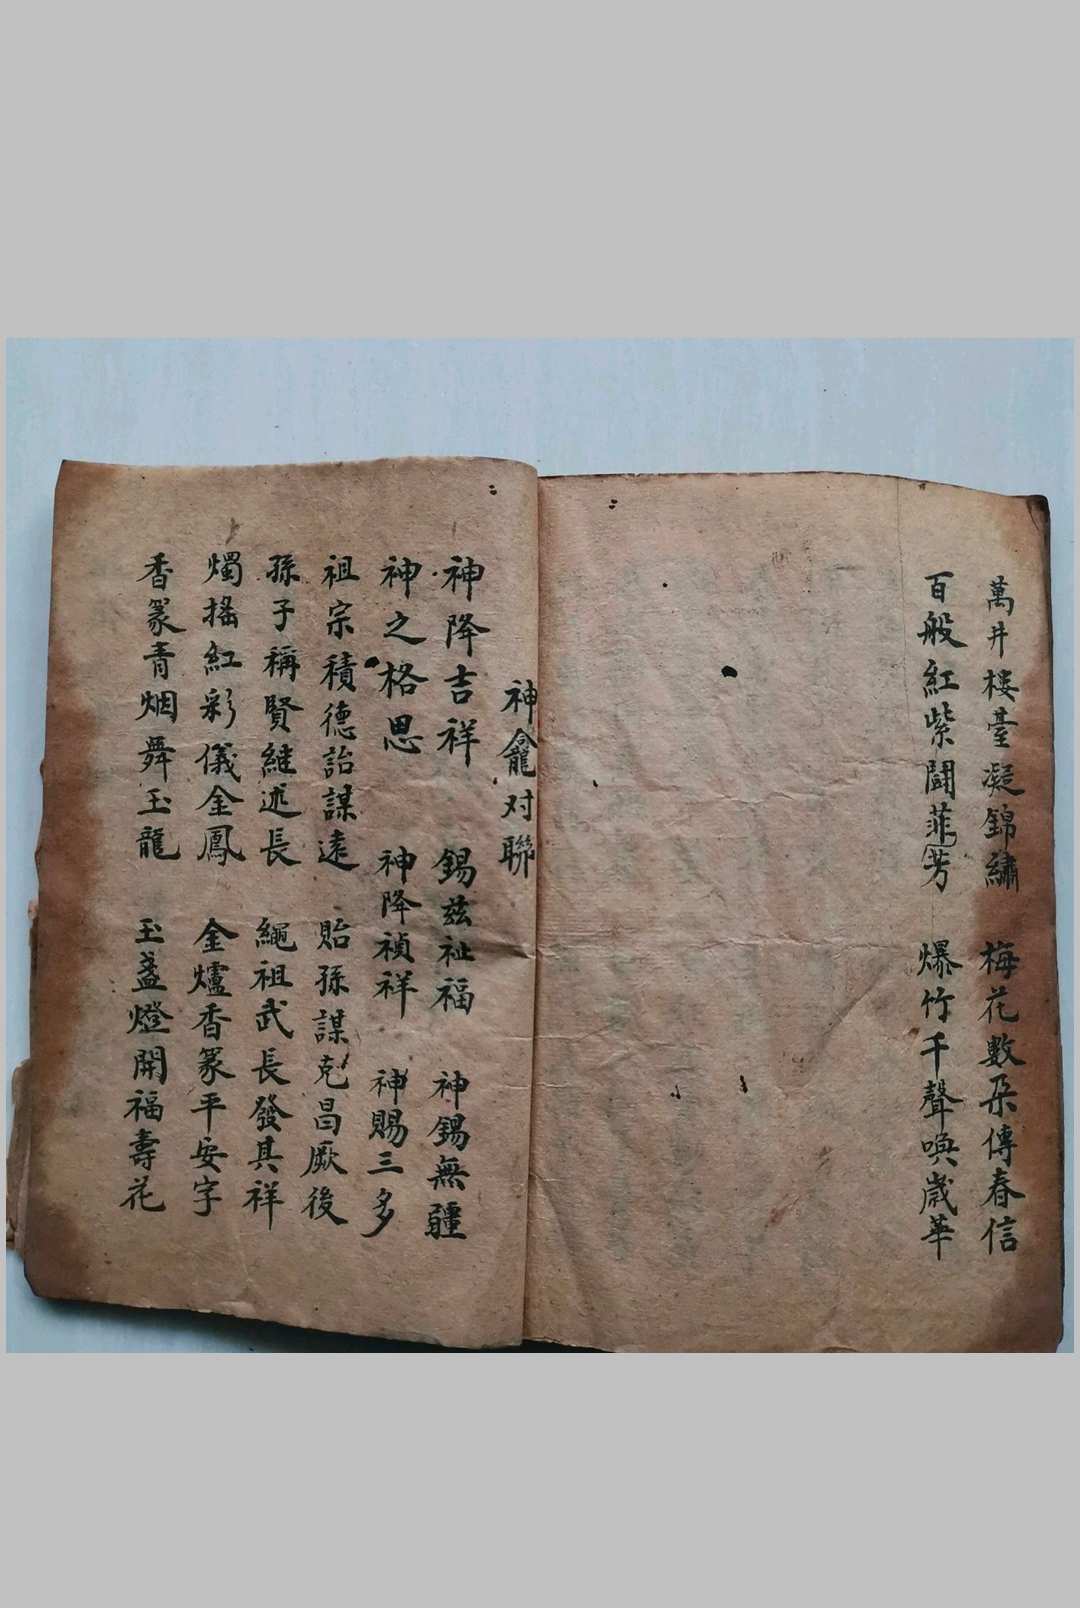 萬井樓臺凝錦繡　梅花數朵傳春信
百般紅紫鬪菲芳　爆竹千聲喚歲華
神龕对聯
神降吉祥　錫茲祉福　神錫無疆
神之格思　神降禎祥　神賜三多
祖宗積德詒謀遠　貽孫謀克昌厥後
孫子稱賢継述長　繩祖武長發其祥
燭搖紅彩儀金鳳　金爐香篆平安字
香篆青烟舞玉龍　玉盞燈開福壽花